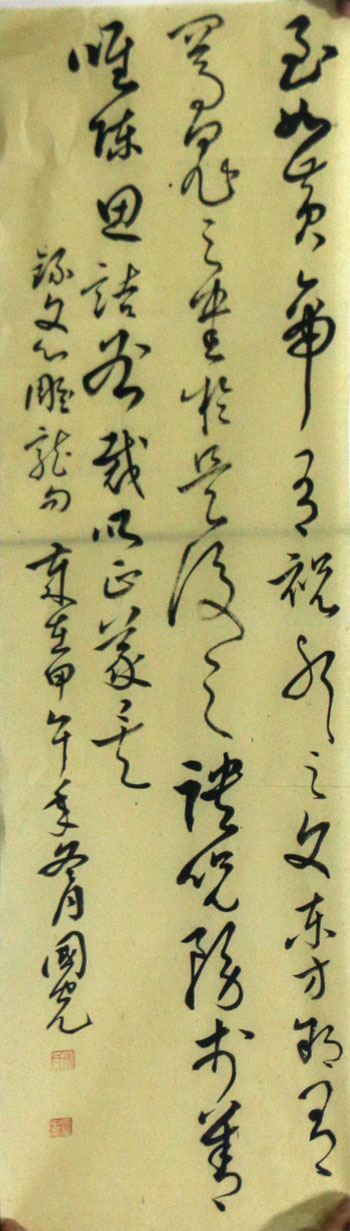 至如黃帝有祝邪之文東方朔有
罵鬼之書於是後之譴呪務於善
唯陳思誥咎裁以正義矣
錄文心雕龍句 歲在甲午年冬月國